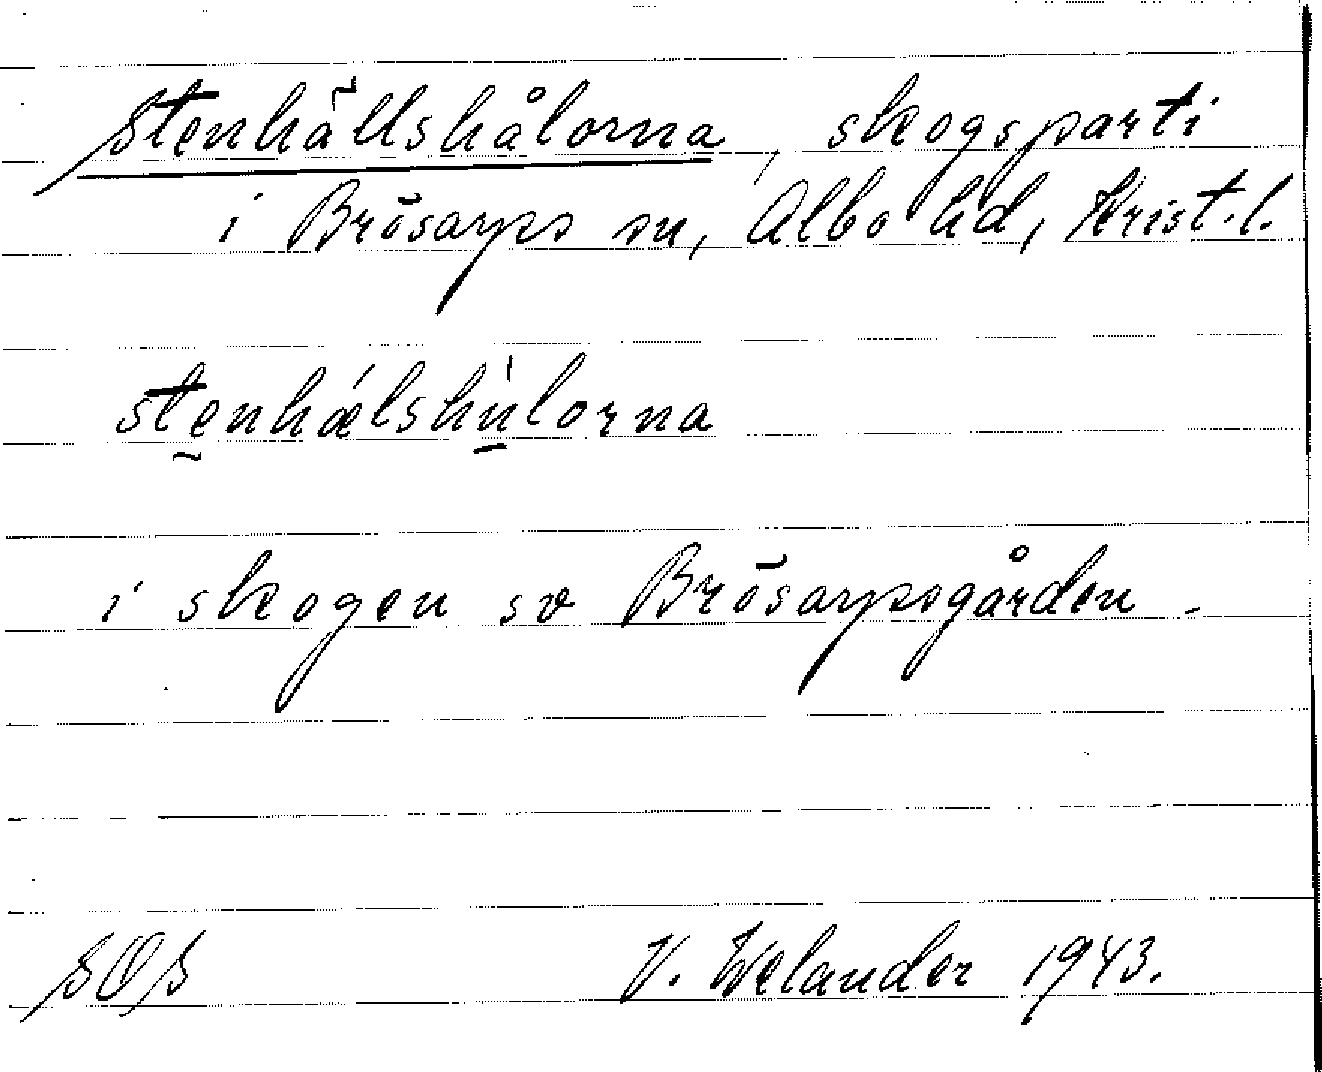 Stenhällshålorna, skogsparti
i Brösarps sn, Albo hd, Krist. l.
stenhǽlshu̍lorna
i skogen sv Brösarpsgården.
SOS V. Welander 1943.